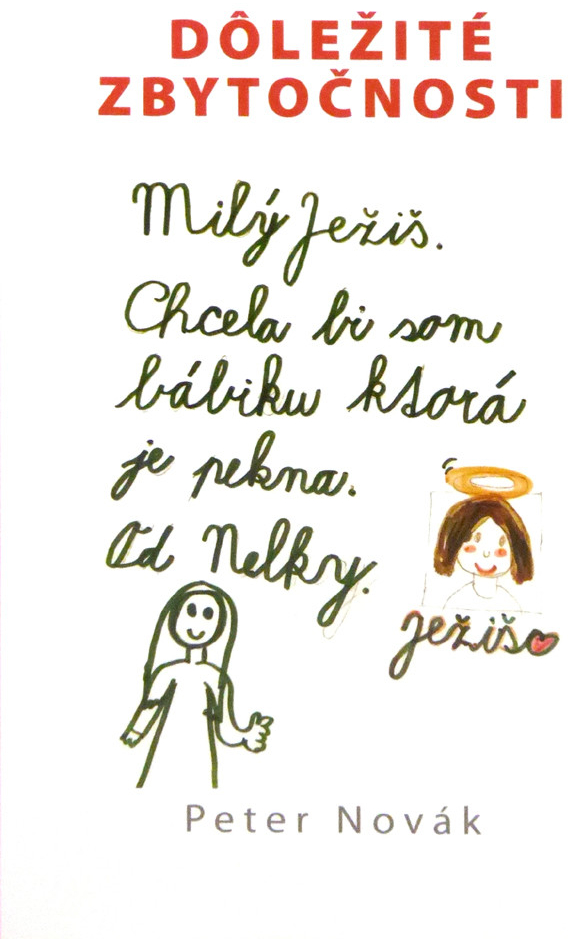 DÔLEŽITÉ
ZBYTOČNOSTI
Milý Ježiš.
Chcela bi som
bábiku ktorá
je pekna.
Od Nelky.
Ježiš
Peter Novák